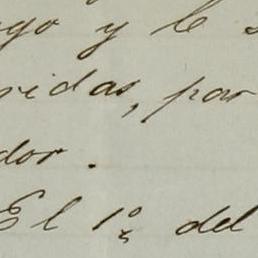 go y le s
ridas, por
dor.
El 1º del